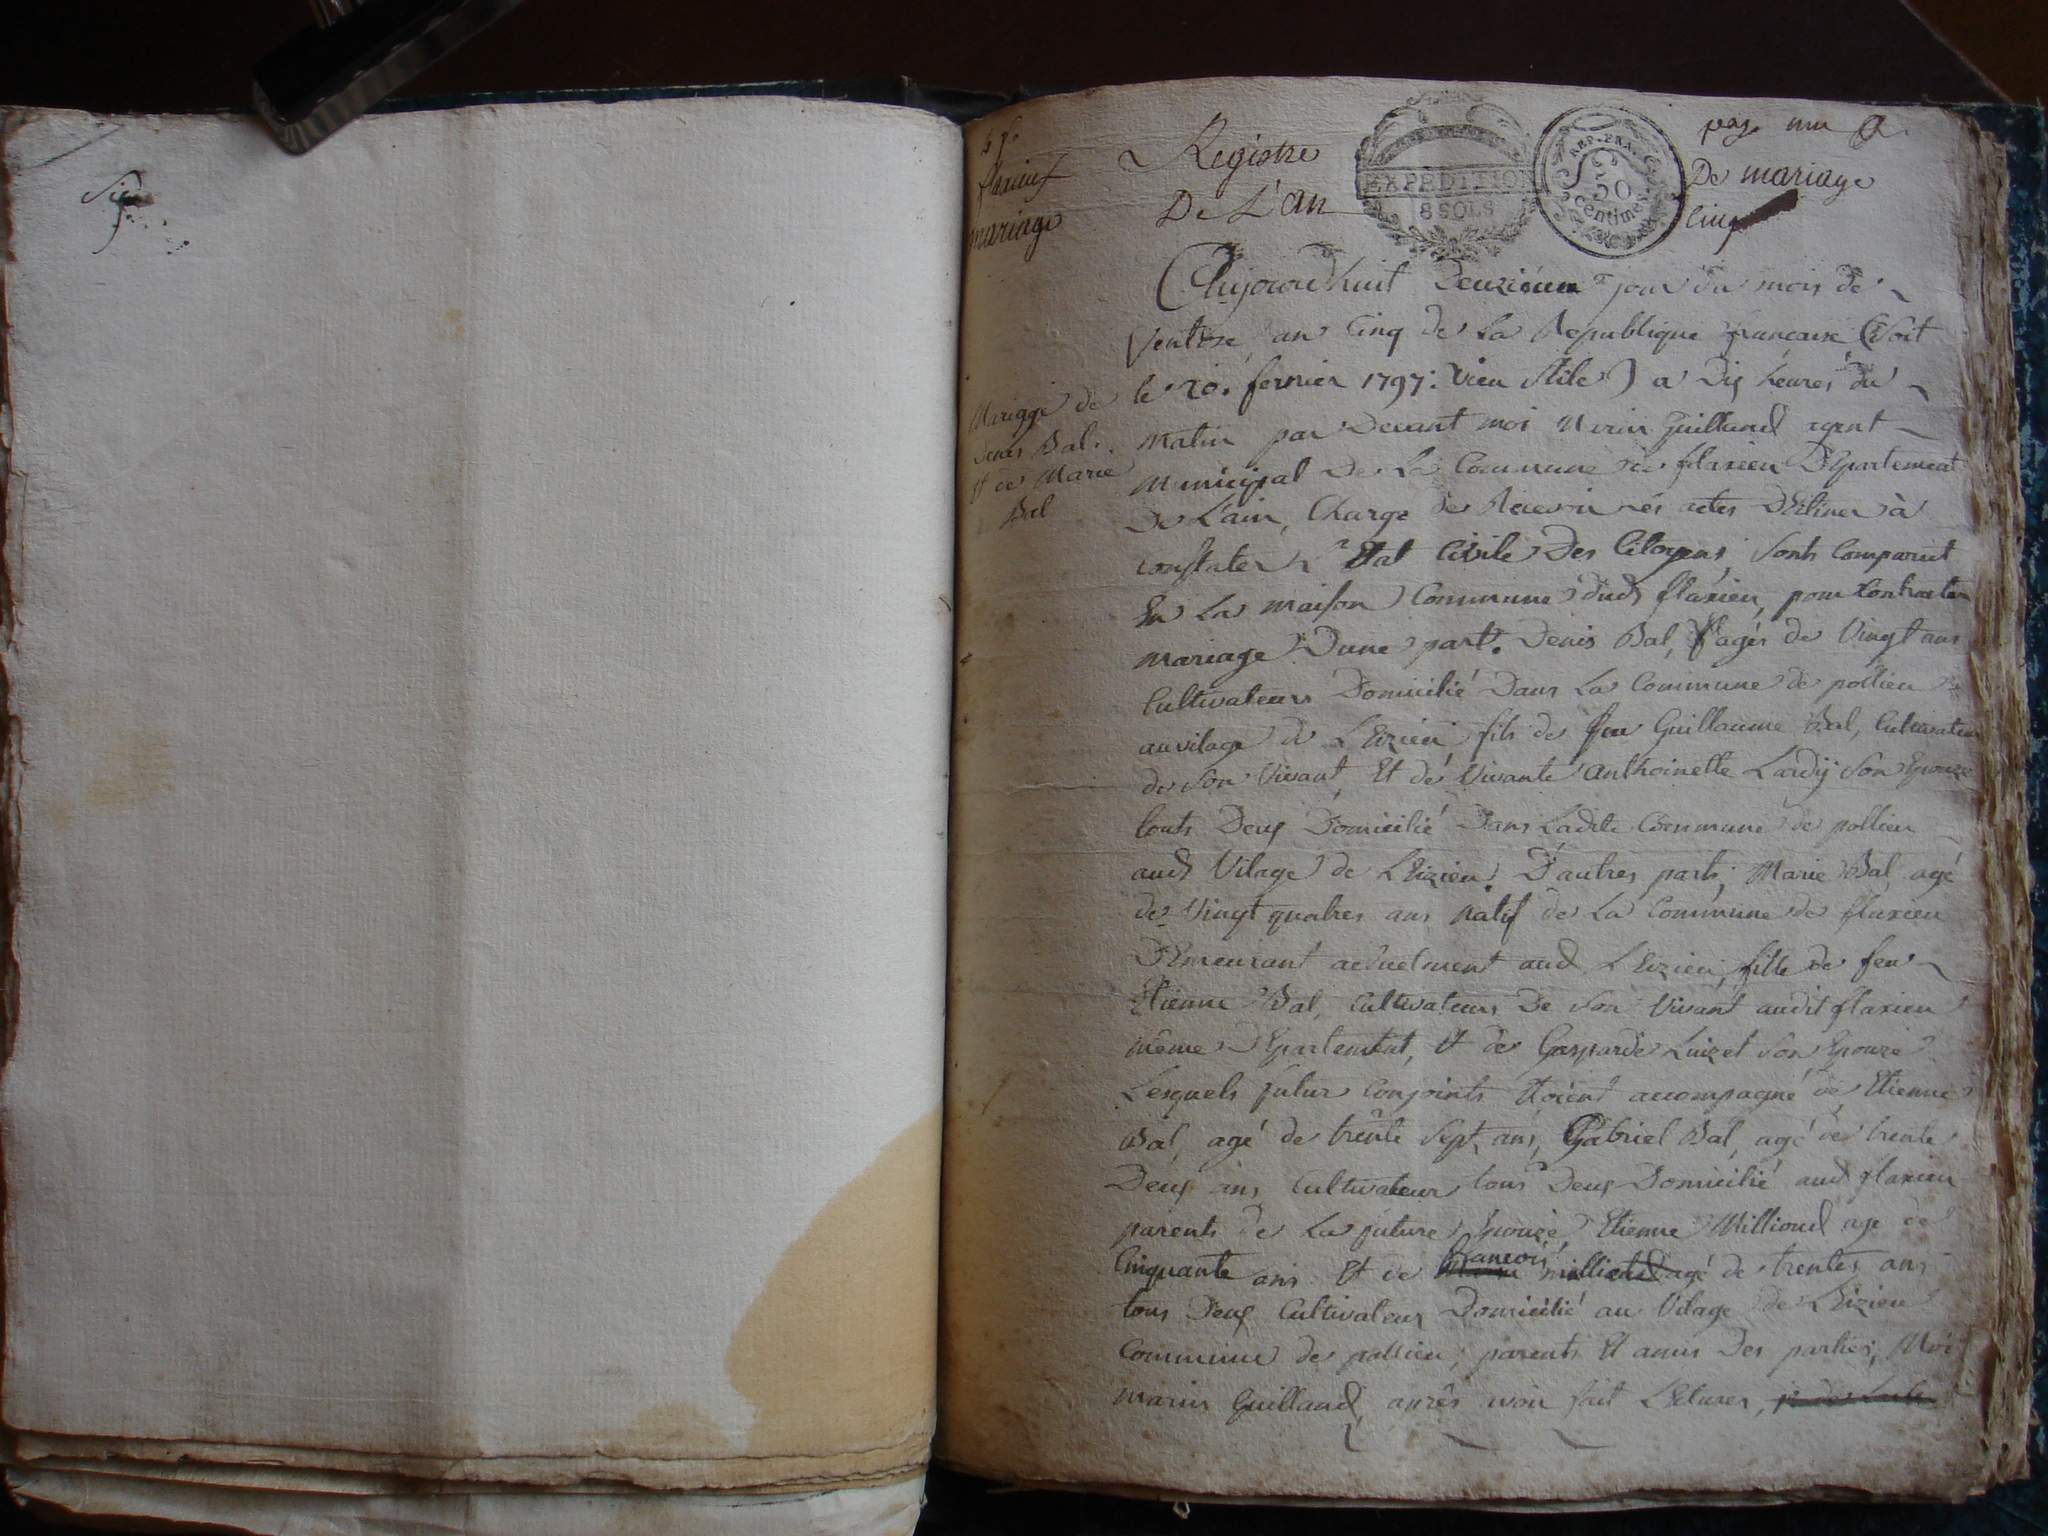 flaxieu
mariage
Registre
De L'an
EXPEDITION
8 SOLS
REP. FRA.
50
centimes
page une
De mariage
Cinq
Mariage de
Denis Bal.
Et de Marie
Bal
Aujourd huit Deuziéme jour du mois de
Ventose an Cinq de la Republique francaise (Soit
le 20. fevrier 1797: Vieu Stile) a Dix heures du
matin par Devant moi Marin Guilland agent
municipal De La Commune de flaxieu Departement
De L'ain, Charge de Recevoir les actes D'Estiner à
constater L'Etat Civile Des Citoyens, sonts Comparut
En La maison Commune dud flaxieu, pour Contracter
mariage Dune part. Denis Bal, agés de Vingt ans
Cultivateurs Domicilié Dans La Commune de pollieu
au vilage de LEizieu fils de feu Guillaume Bal, Cultivateur
de son Vivant, Et de Vivante Anthoinette Lardÿ son Epouze
touts Deux Domicilié Dans Ladite Commune de pollieu
aud Vilage de LEizieu. D'autres parts; Marie Bal agé
de Vingt quatres ans natif de La Commune de flaxieu
DEmeurant actuelment aud LEizieu, fille de feu
Etienne Bal, Cultivateurs De son Vivant audit flaxieu
même DEpartement, Et de Gasparde Luizet son Epouze
Lesquels futur conjoints Etoient accompagné de Etienne
Bal, agé de trente Sept ans, Gabriel Bal, agé de trente
Deux ans Cultivateur tous Deux Domicilié aud flaxieu
parents de La future Epouze, Etienne Milliond age de
Cinquante ans Et de francois milliond agé de trentes ans
tous Deux Cultivateur Domicilié au Vilage de LEizieu
Commune de pollieu, parents Et amis Des parties, Moi
marin Guilland, après avoir fait LEctures,